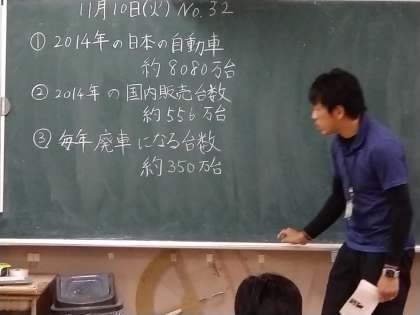 11月10日(火) No.32
① 2014年の日本の自動車
約8080万台
② 2014年の国内販売台数
約556万台
③ 毎年廃車になる台数
約350万台